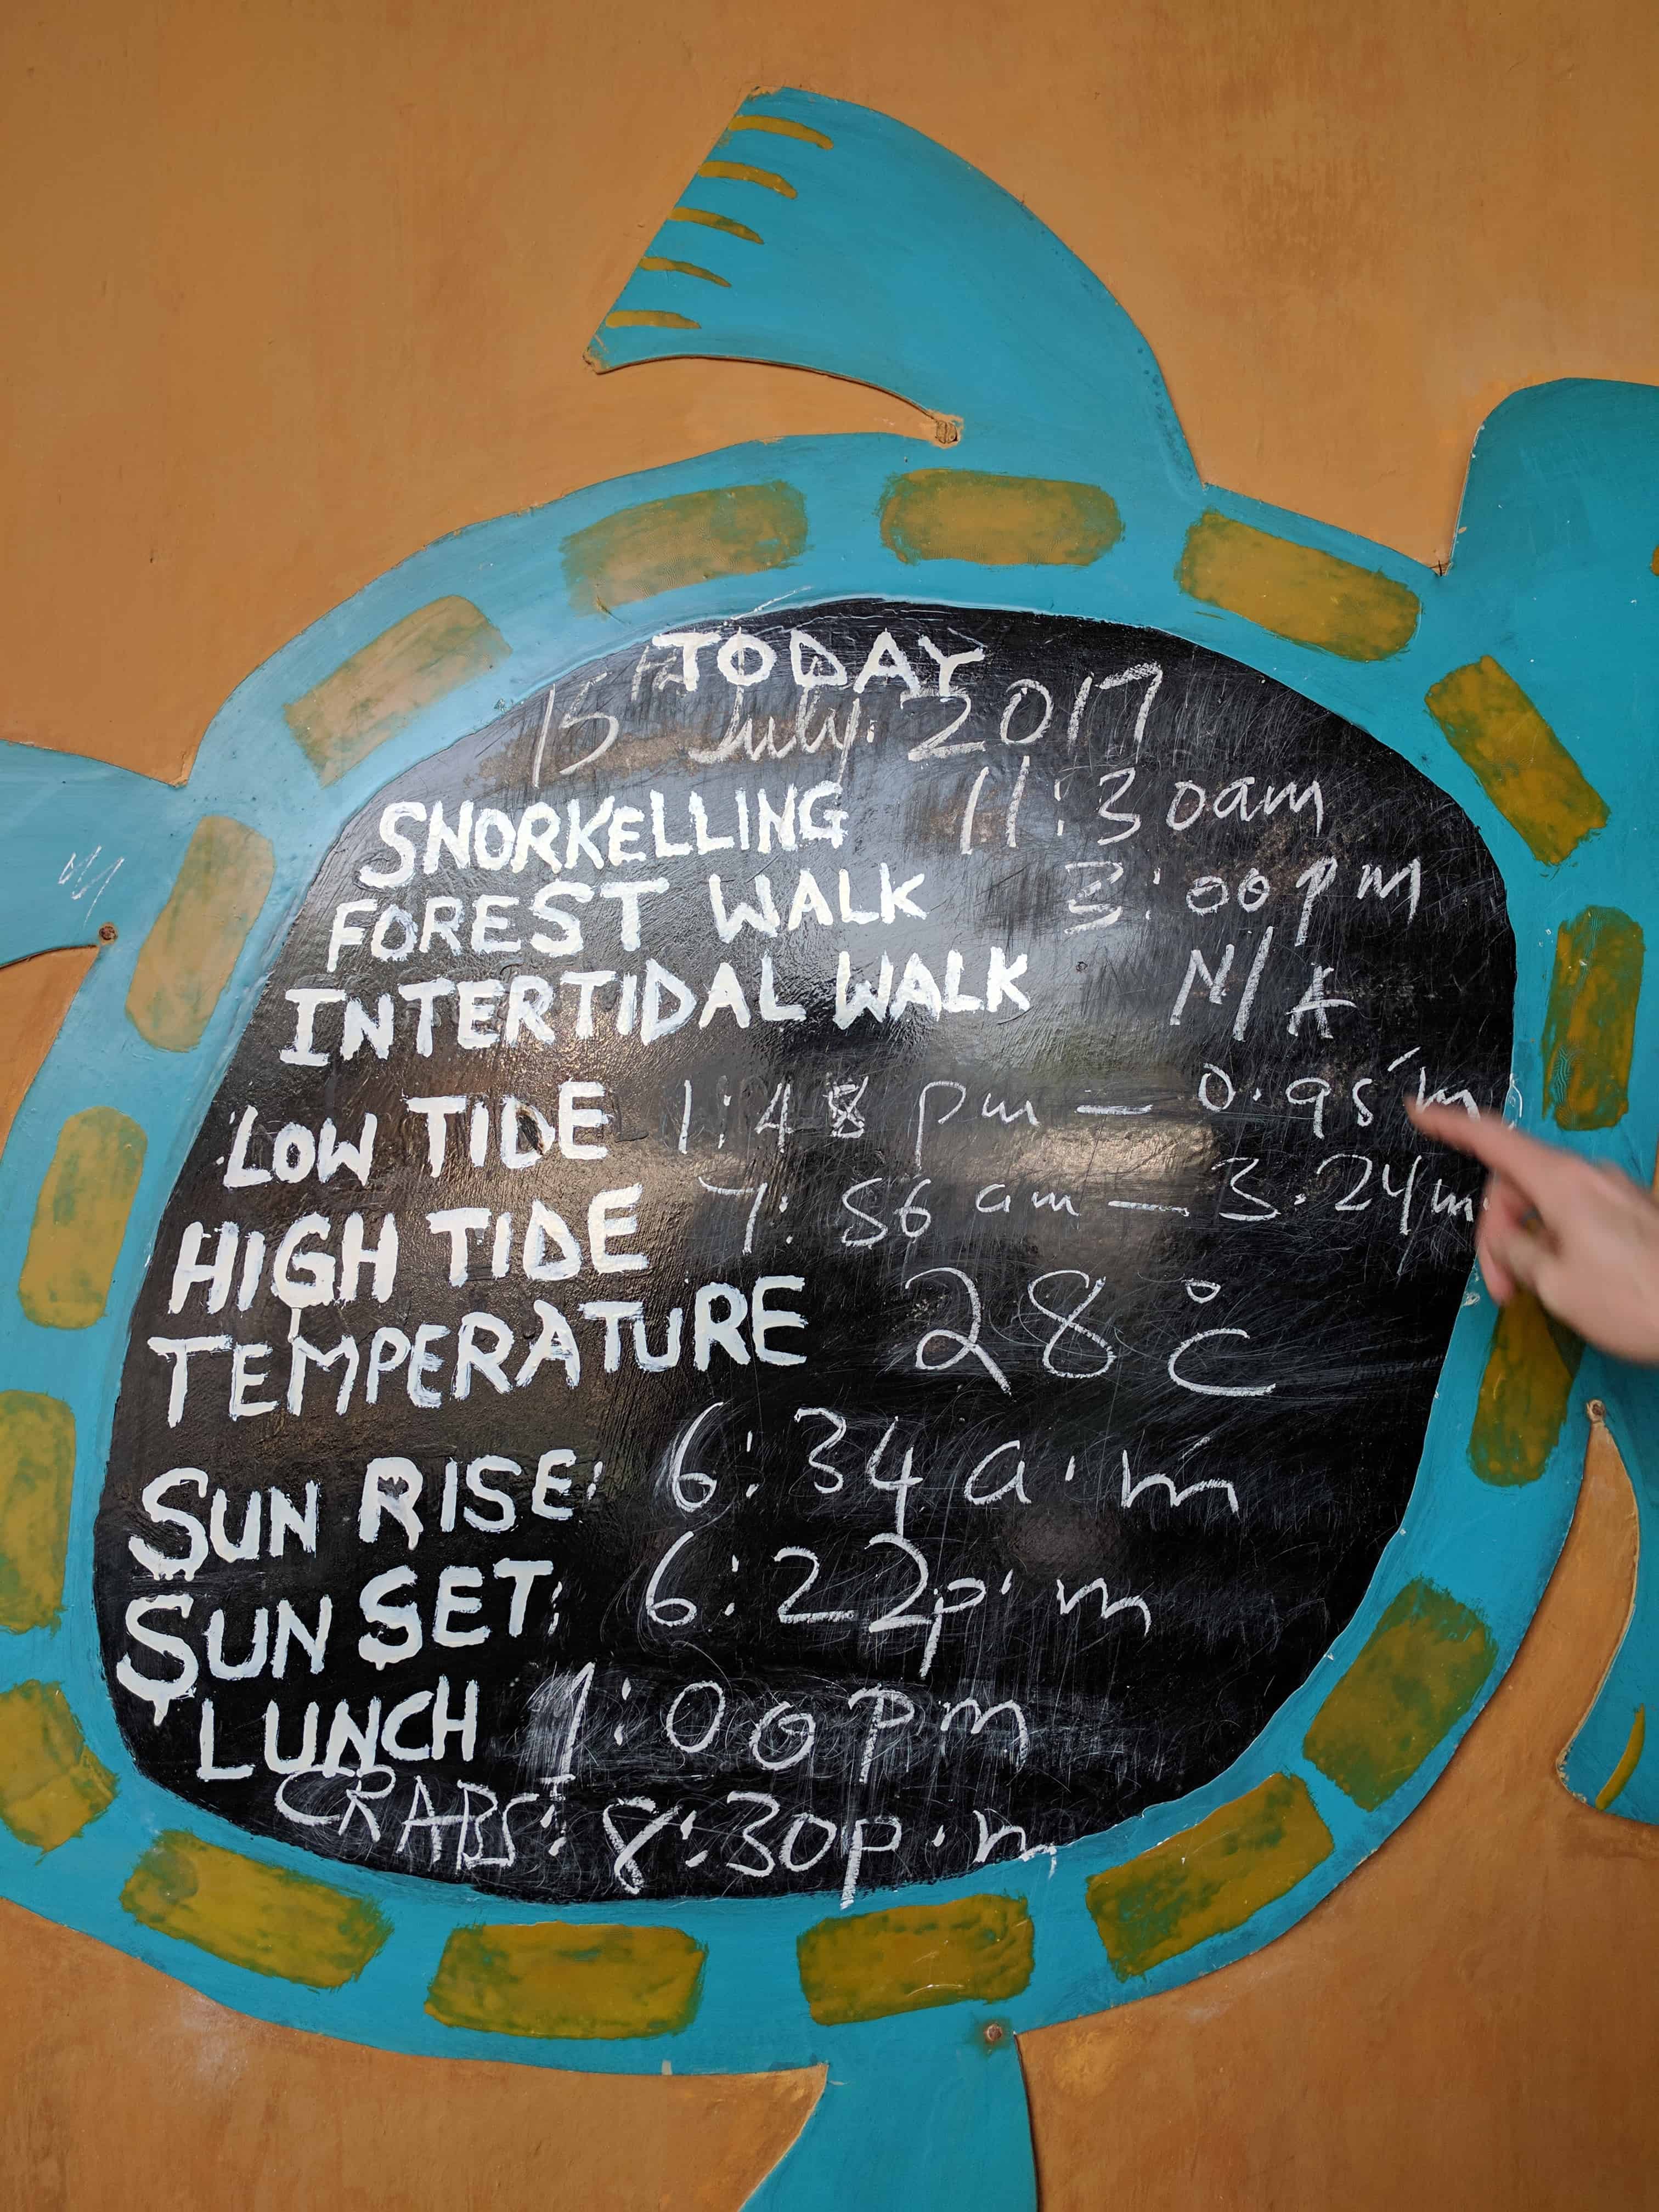 TODAY
15th July. 2017
SNORKELLING 11:30am
FOREST WALK 3:00pm
INTERTIDAL WALK N/A
LOW TIDE 1:48 pm — 0.95m
HIGH TIDE 7:56 am — 3.24m
TEMPERATURE 28°C
SUN RISE: 6:34 a.m
SUN SET: 6:22p.m
LUNCH 1:00pm
CRABS: 8:30p.m